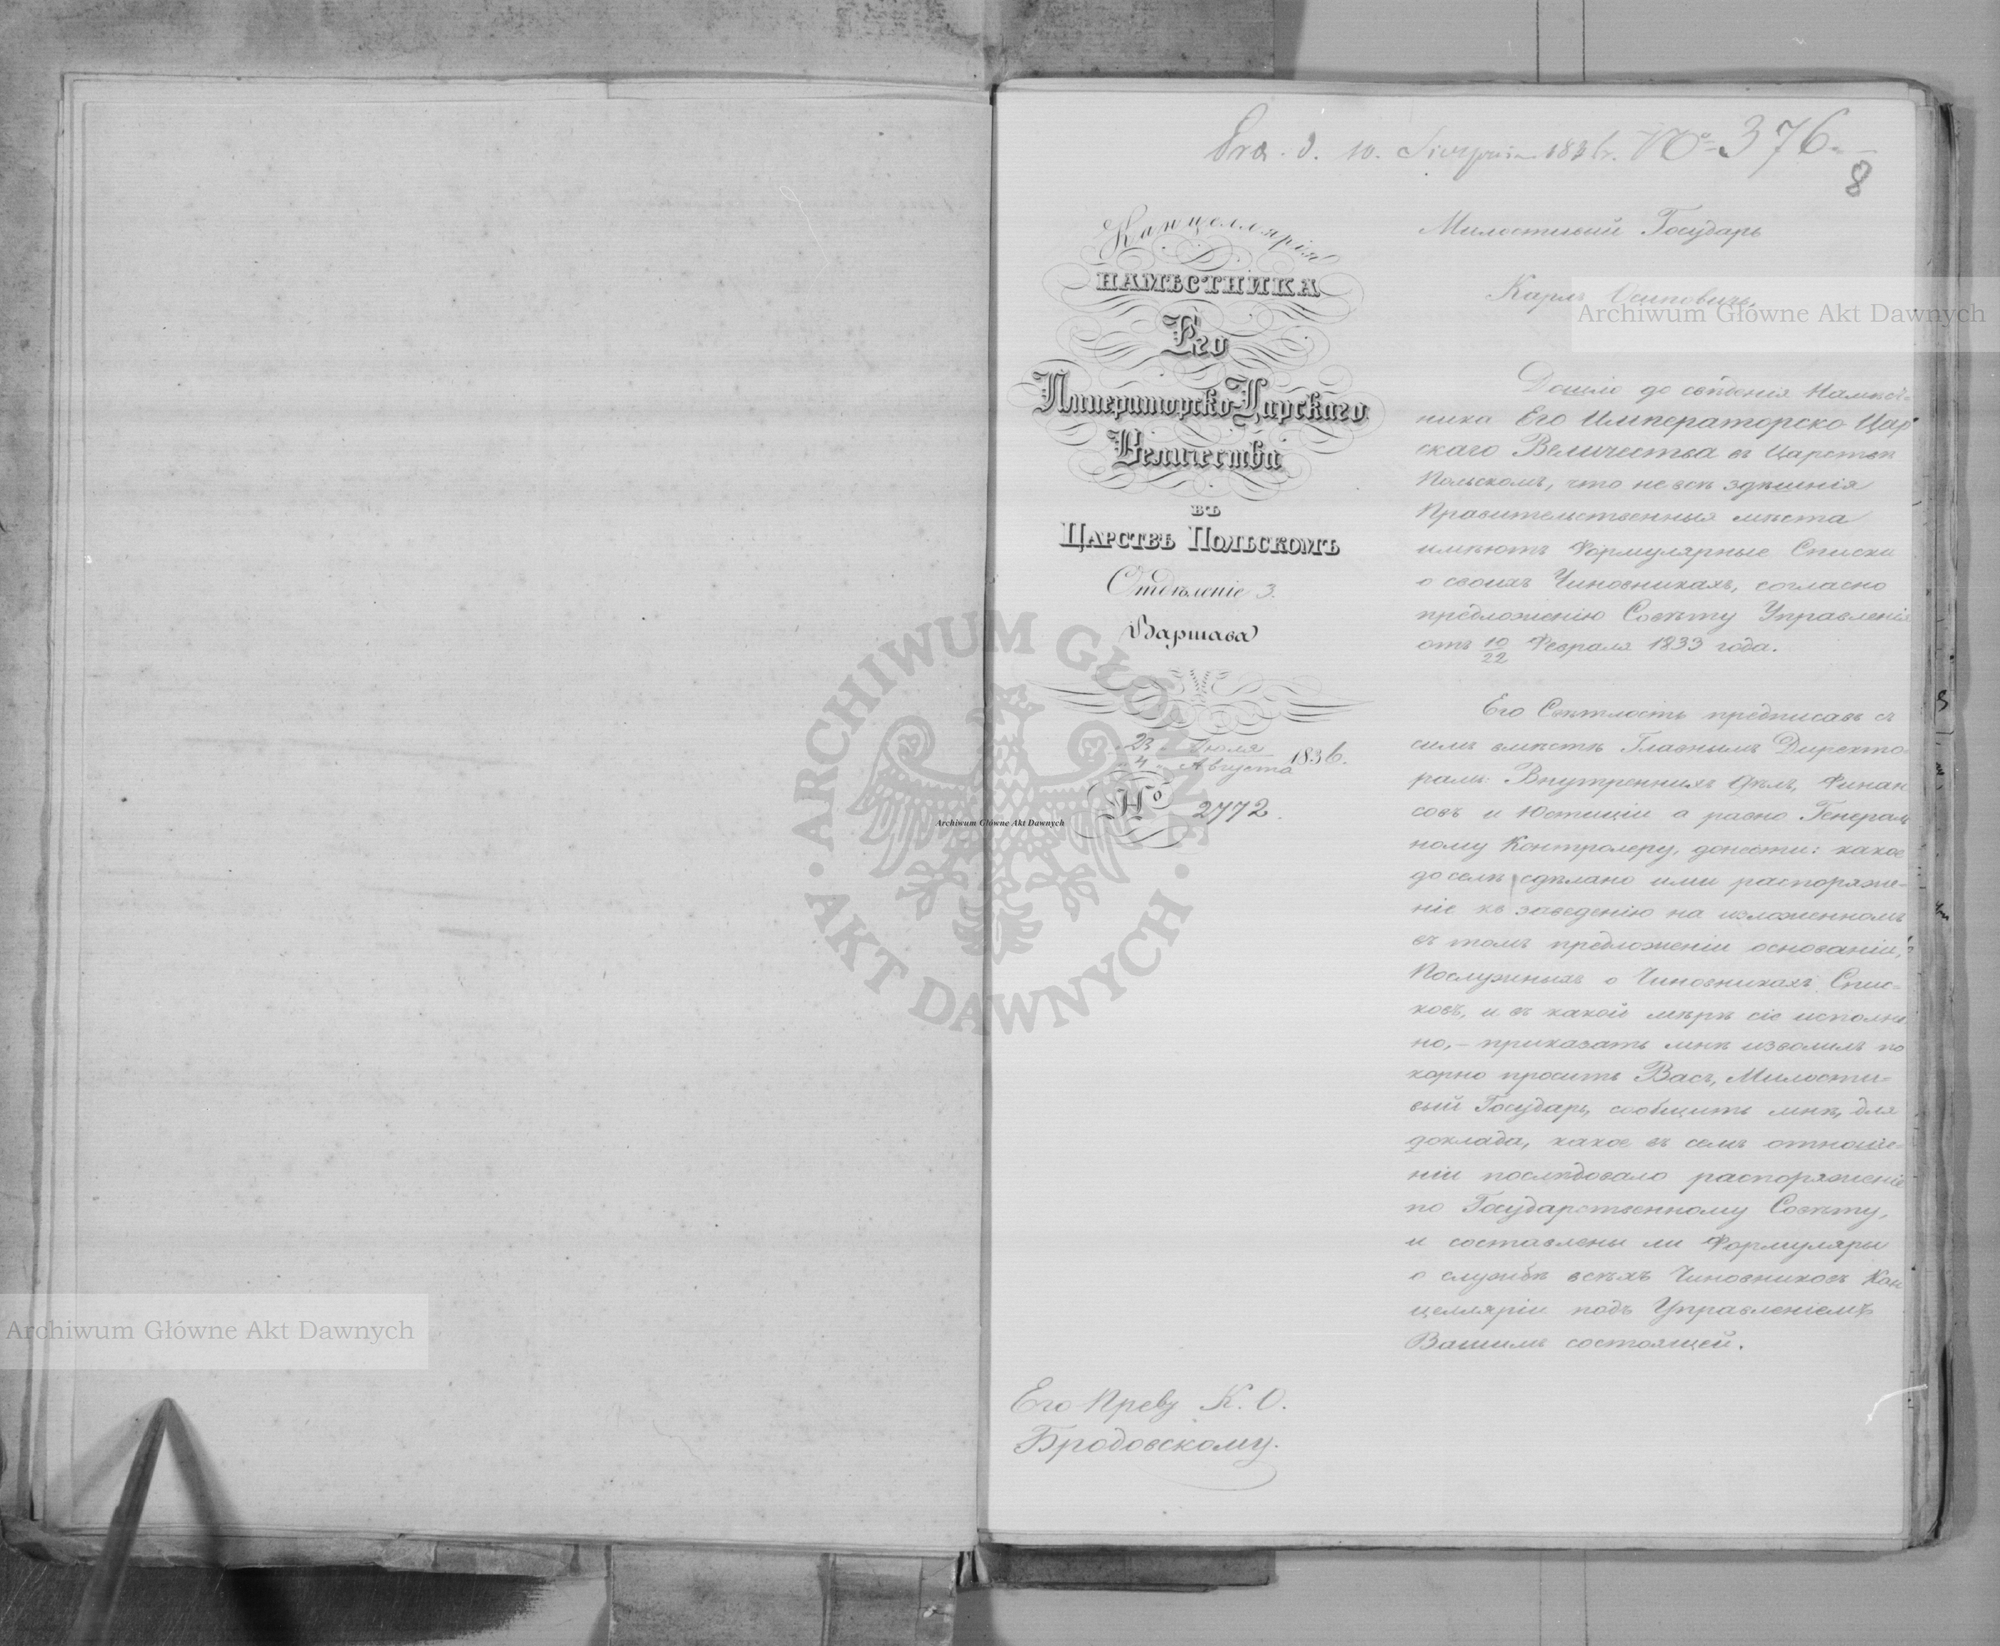 Pra. d. 10. Sierpnia 1836 r. No 376.
8
Канцеллярія
НАМѢСТНИКА
Его
Императорско-Царскаго
Величества
ВЪ
ЦАРСТВѢ ПОЛЬСКОМЪ
Отдѣленіе 3.
Варшава
23 Іюля
4 Августа 1836.
№ 2772.
Милостивый Государь
Карлъ Осиповичъ,
Дошло до свѣденія Намѣст-
ника Его Императорско Цар
скаго Величества въ Царствѣ
Польскомъ, что не всѣ здѣшнія
Правительственныя мѣста
имѣютъ Формулярные Списки
о своихъ Чиновникахъ, согласно
предложенію Совѣту Управленія
отъ 10/22 Февраля 1833 года.
Его Свѣтлость предписавъ съ
симъ вмѣстѣ Главнымъ Директо-
рамъ: Внутреннихъ Дѣлъ, Финан
совъ и Юстиціи а равно Генераль
ному Контролеру, донести: какое
до селѣ сдѣлано ими распоряже-
ніе къ заведенію на изложенномъ
въ томъ предложеніи основаніи,
Послужныхъ о Чиновникахъ Спис-
ковъ, и въ какой мѣрѣ сіе исполне
но, – приказать мнѣ изволилъ по
корно просить Васъ, Милости-
вый Государь, сообщить мнѣ, для
доклада, какое въ семъ отноше-
ніи послѣдовало распоряженіе
по Государственному Совѣту,
и составлены ли Формуляры
о службѣ всѣхъ Чиновниковъ Кан
целляріи подъ Управленіемъ
Вашимъ состоящей.
Его Превю К. О.
Бродовскому.
Archiwum Główne Akt Dawnych
Archiwum Główne Akt Dawnych
Archiwum Główne Akt Dawnych
ARCHIWUM GŁÓWNE
AKT DAWNYCH